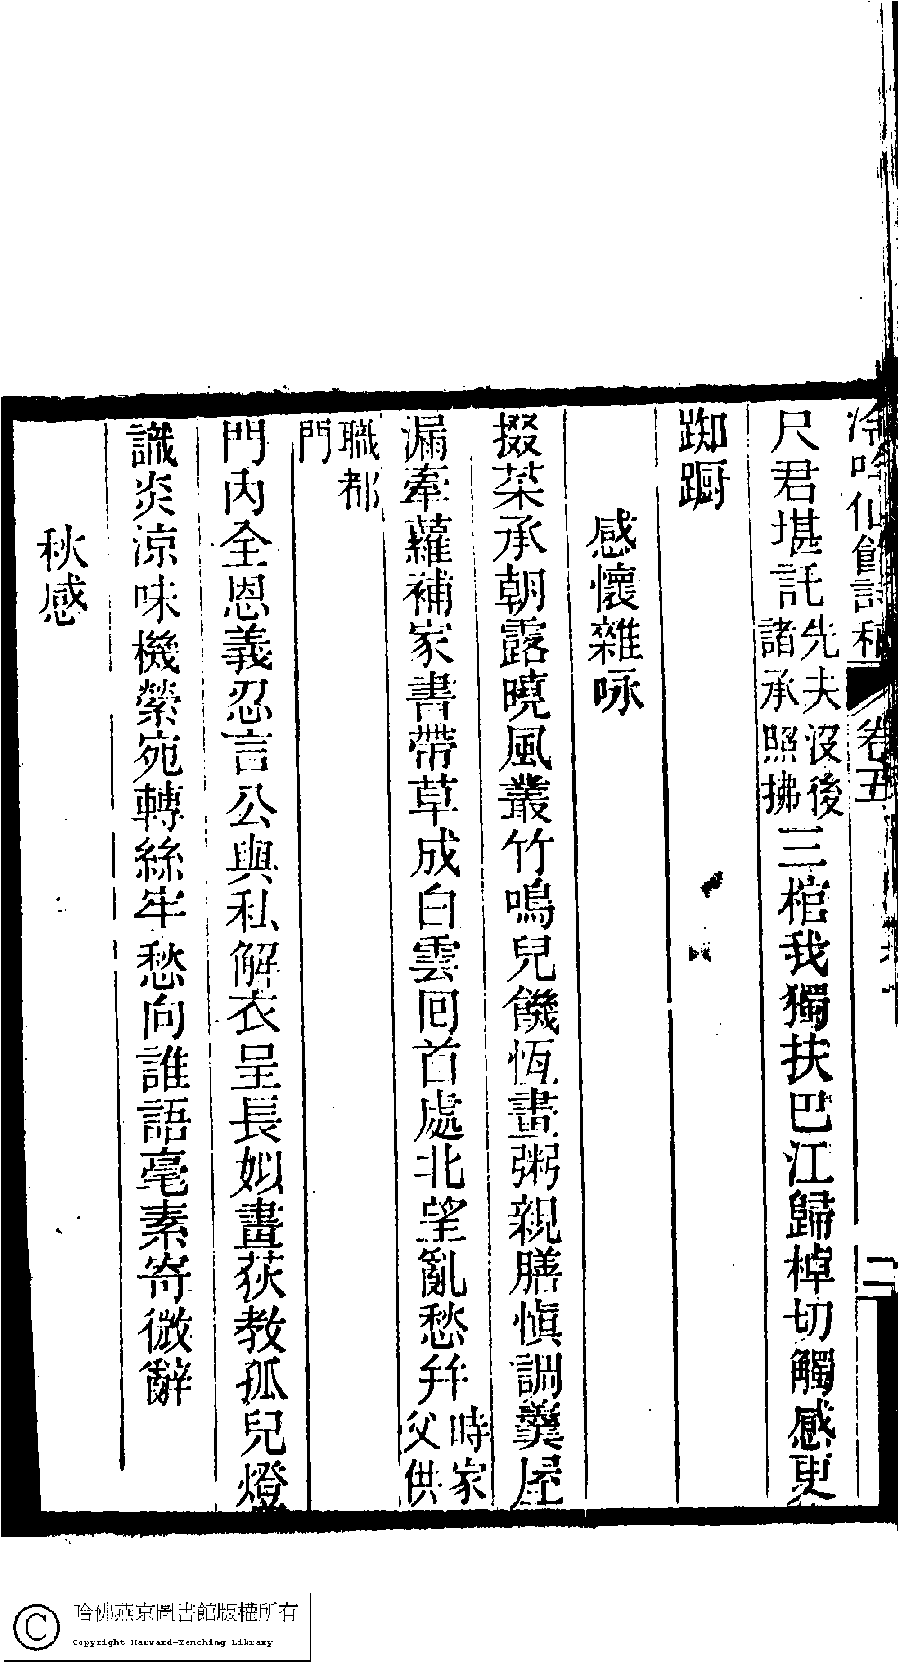 冷吟仙館詩稿 卷五 二
尺君堪託先夫沒後諸承照拂三棺我獨扶巴江歸棹切觸感更
踟躕
感懷雜咏
掇菜承朝露曉風叢竹鳴兒饑恆畫粥親膳慎調羹屋
漏牽蘿補家書帶草成白雲回首處北望亂愁幷時家父供
職都門
門內全恩義忍言公與私解衣呈長姒畫荻教孤兒燈
識炎涼味機縈宛轉絲牢愁向誰語毫素寄微辭
秋感
哈佛燕京圖書館版權所有
Copyright Harvard-Yenching Library